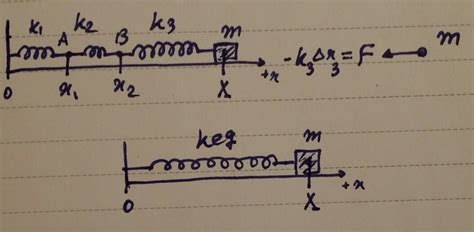 k₁ A k₂ B k₃ m
0 x₁ x₂ X +x
-k₃Δx₃ = F m
keq m
0 X +x